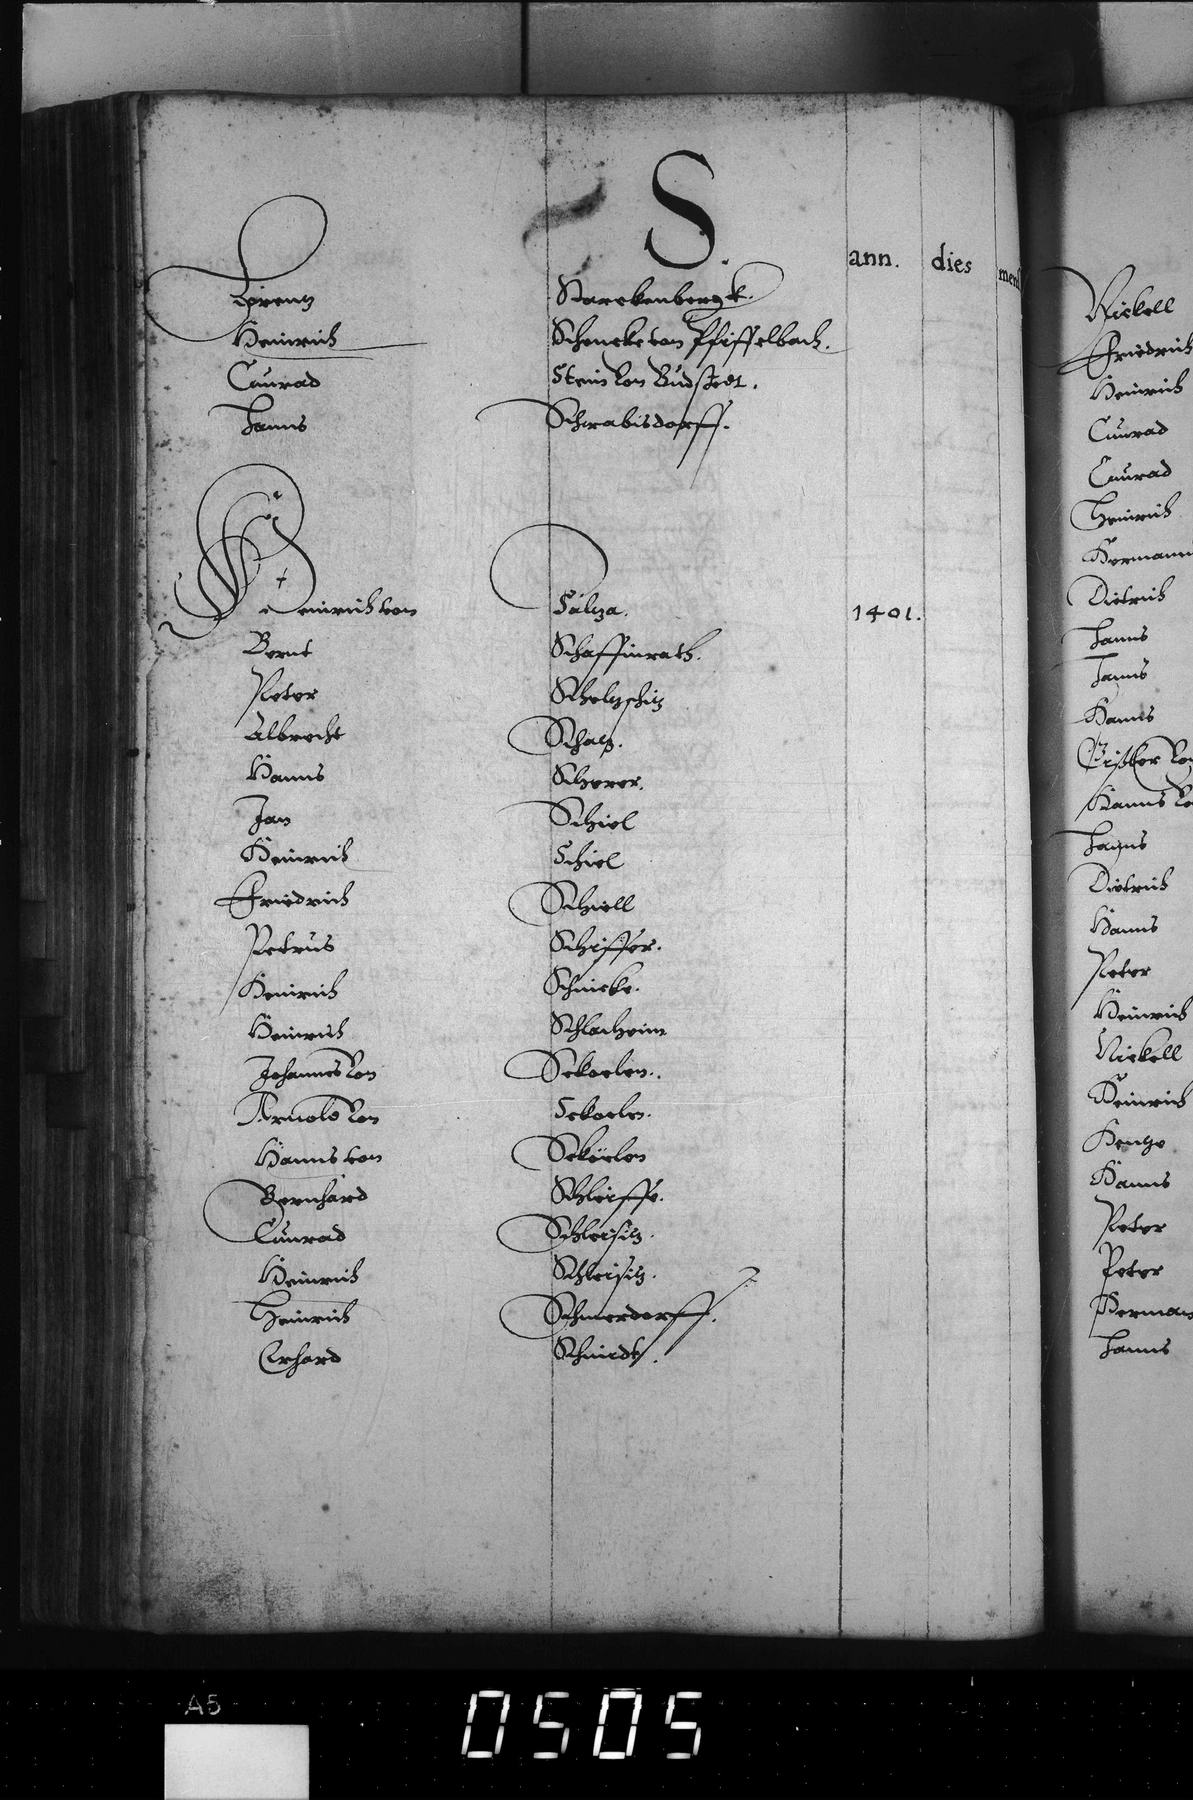 S.
ann. dies mens
Lorentz Starckenbergk.
Heinrich Schencke von Pfiffelbach.
Cunrad Stein von Budstedt.
Hanns Schwabisdorff.
Heinrich von Saltza. 1401.
Bernt Schaffinrath.
Peter
Albrecht Schalz.
Hanns Scherer.
Jan Schiel
Heinrich Schiel
Friedrich Schiell
Petrus Schiffer.
Heinrich Schnicke.
Heinrich Schlacheim
Johannes von Sckoelen.
Arnold von Sckoelen.
Hanns von Sckoelen
Bernhard Schleiffe.
Cunrad Schleisitz.
Heinrich Schleisitz.
Heinrich Schmerdorff.
Erhard Schmidt.
Nickell
Friedrich
Heinrich
Cunrad
Cunrad
Heinrich
Hermann
Dietrich
Hanns
Hanns
Hanns
Hanns
Hanns
Dietrich
Hanns
Peter
Heinrich
Nickell
Heinrich
Hanns
Peter
Peter
Herman
Hanns
A5
0505